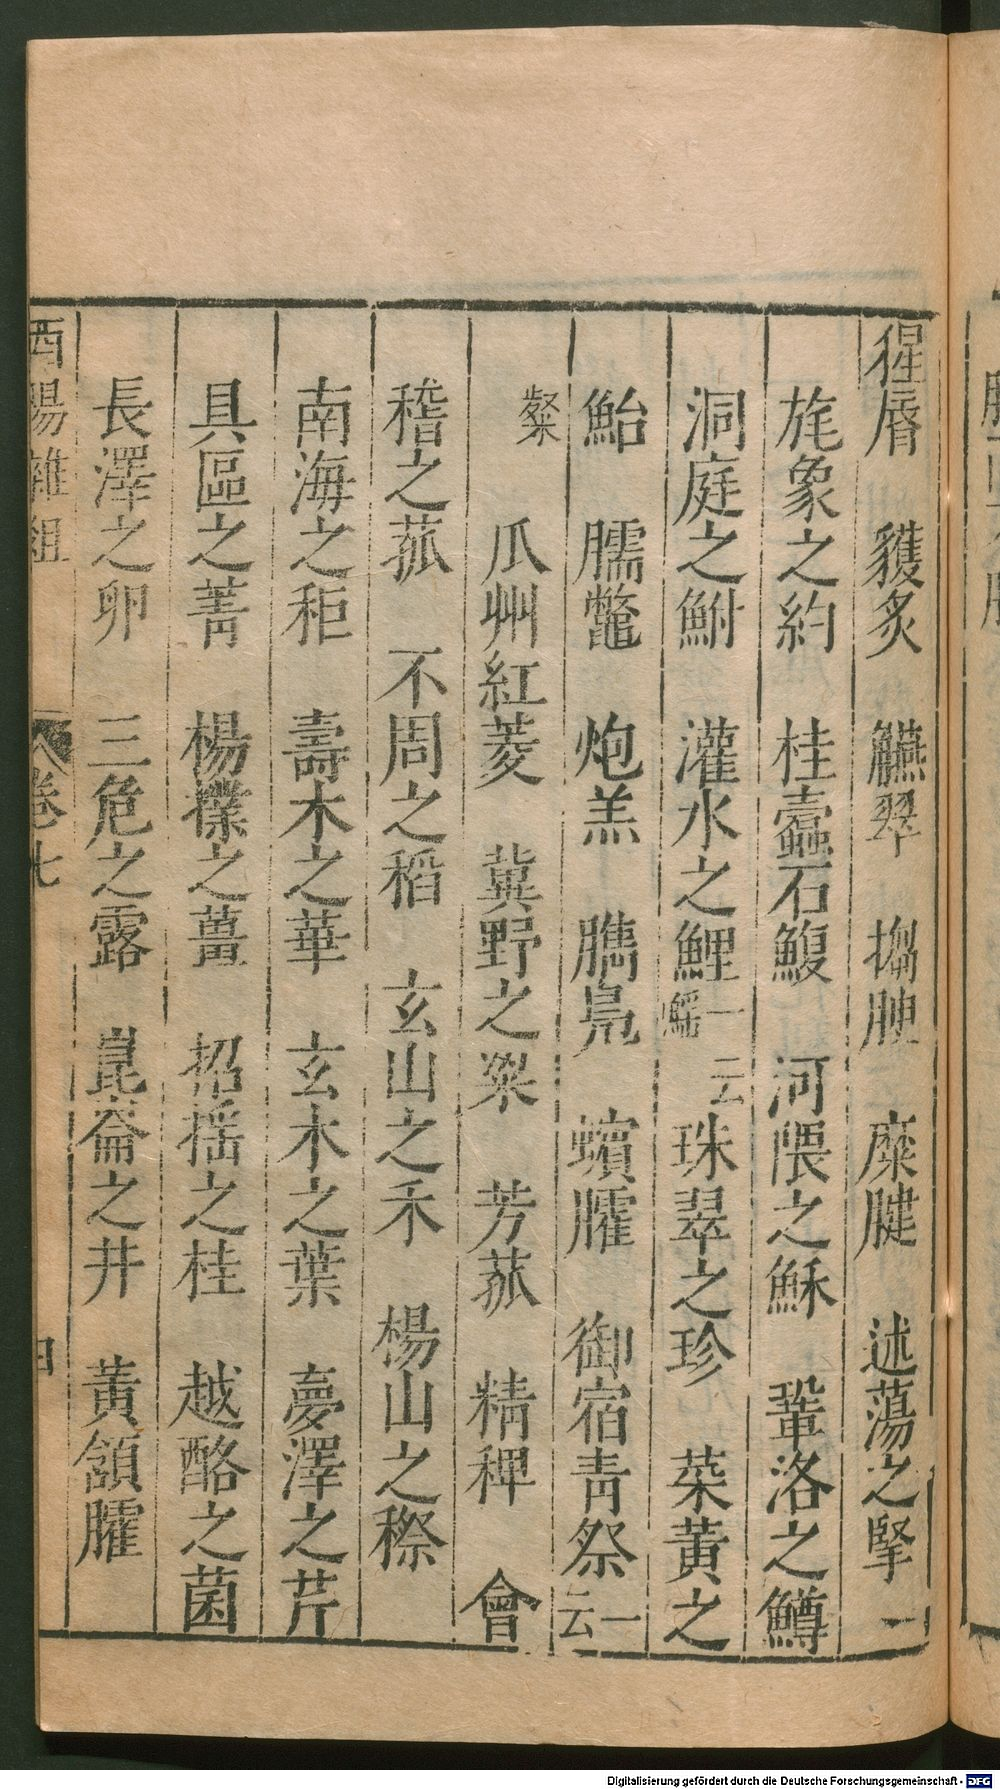 猩脣 貜炙 觾翠 㨨腴 糜腱 述蕩之掔 一
旄象之約 桂蠹石鰒 河隈之穌 鞏洛之鱒
洞庭之鮒 灌水之鯉 一云鰩 珠翠之珍 菜黃之
鮐 臑鼈 炮羔 臇鳧 蠙臛 御宿青祭 一云
粲 瓜州紅菱 冀野之梁 芳菰 精稗 會
稽之菰 不周之稻 玄山之禾 楊山之穄
南海之秬 壽木之華 玄木之葉 夢澤之芹
具區之菁 楊樸之薑 招搖之桂 越酪之菌
長澤之卵 三危之露 崑崙之井 黃頷臛
酉陽雜俎 卷七 四
Digitalisierung gefördert durch die Deutsche Forschungsgemeinschaft - DFG